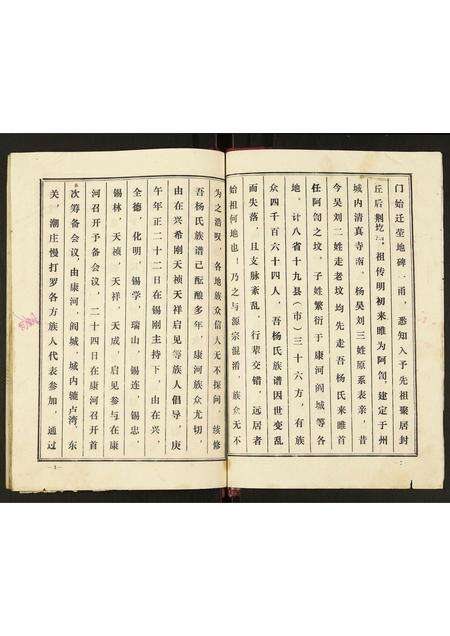 门始迁茔地碑一甬，悉知入予先祖聚居封
丘后荆圪，祖传明初来睢为阿訇，建定于州
城内清真寺南，杨吴刘三姓原系表亲，昔
今吴刘二姓走老坟均先走吾杨氏来睢首
任阿訇之坟，子姓繁衍于康河阎城等各
地，计八省十九县（市）三十六方，有族
众四千百六十四人，吾杨氏族谱因世变乱
而失落，且支脉紊乱，行辈交错，远居者
始祖何地也，乃之与源宗混淆，族众无不
2
为之浩叹，各地族众信人无不探问，续修
吾杨氏族谱已酝酿多年，康河族众尤切，
由在兴希刚天祯天祥启见等族人倡导，庚
午年正二十二日在锡刚主持下，由在兴，
全德，化明，锡学，瑞山，锡连，锡忠，
锡林，天祯，天祥，天成，启见参与在康
河召开予备会议，二十四日在康河召开首
次筹备会议，由康河，阎城，城内辘卢湾，东
关，潮庄慢打罗各方族人代表参加，通过